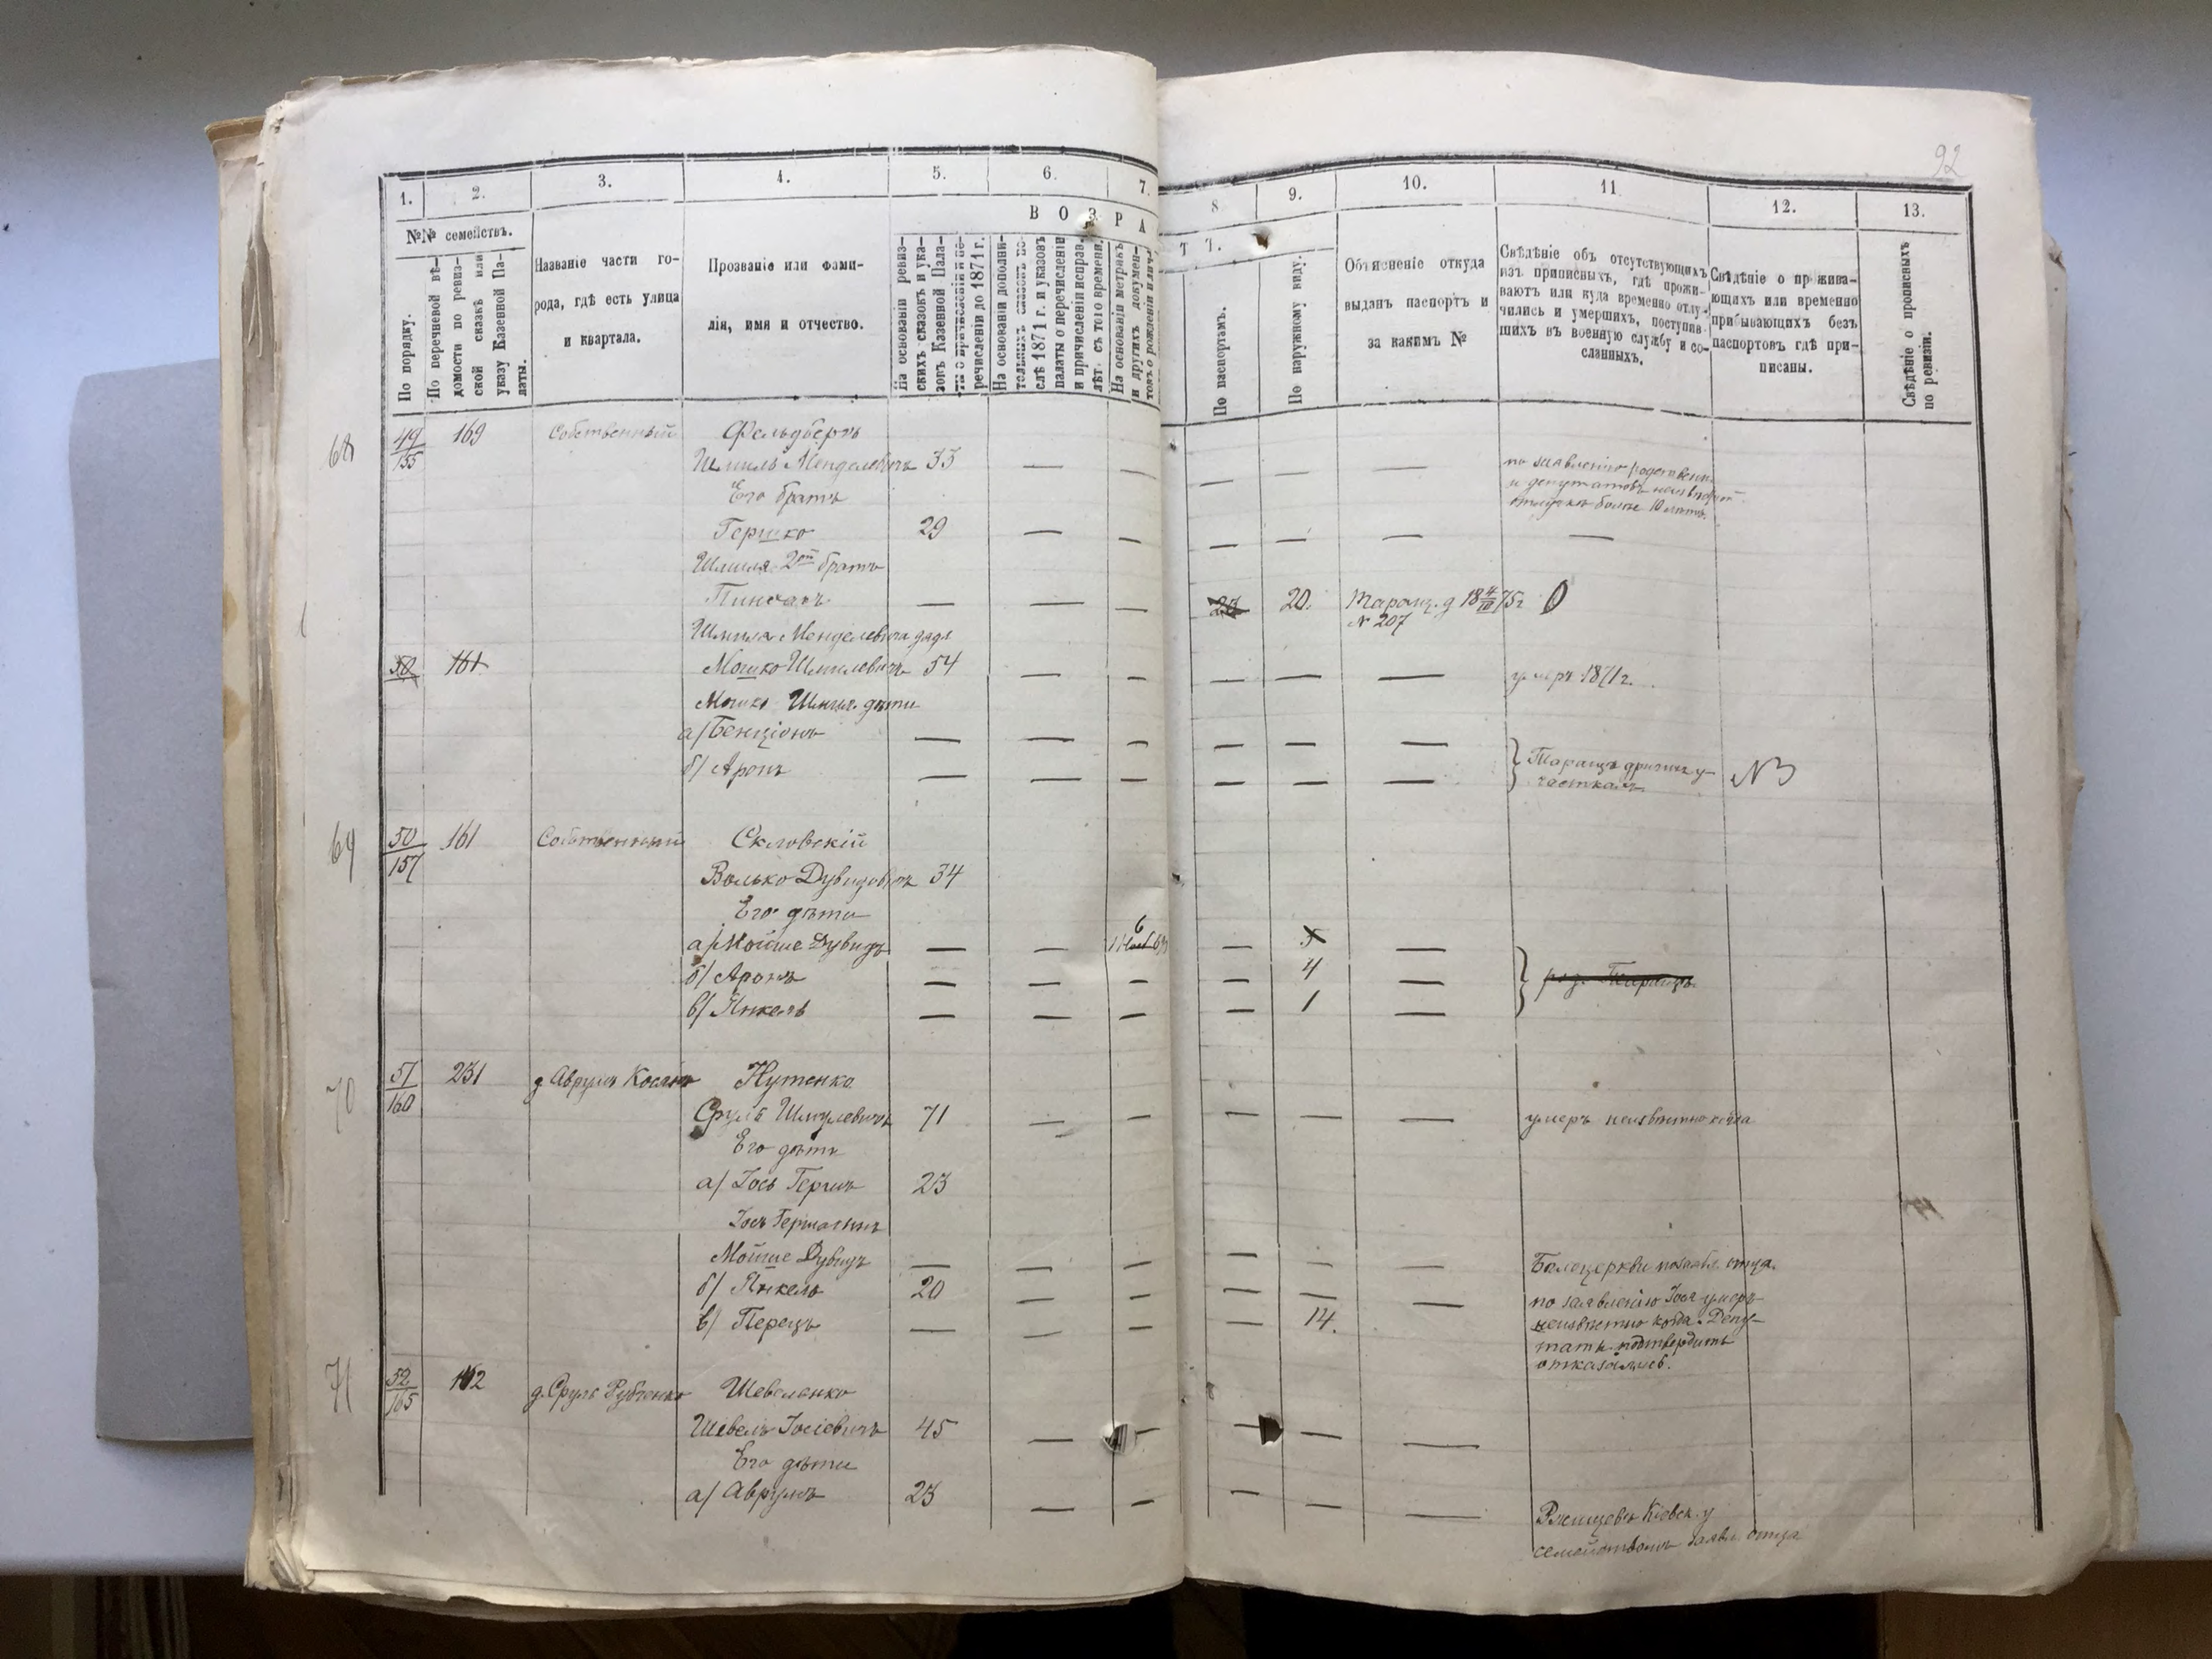 92
1. 2. 3. 4. 5. 6. 7. 8 9. 10. 11. 12. 13.
№№ семействъ.
По порядку.
По перечневой вѣ-
домости по ревиз-
ской сказкѣ или
указу Казенной Па-
латы.
Названіе части го-
рода, гдѣ есть улица
и квартала.
Прозваніе или фами-
лія, имя и отчество.
ВОЗРА
Т Ъ.
На основаніи ревиз-
скихъ сказокъ и ука-
зовъ Казенной Пала-
ты о причисленіи и пе-
речисленіи до 1871 г.
На основаніи дополни-
тельныхъ сказокъ по-
слѣ 1871 г. и указовъ
палаты о перечисленіи
и причисленіи исправ.
лѣт. съ того времени.
На основаніи метрикъ
и другихъ докумен-
товъ о рожденіи и лич
По паспортамъ.
По наружному виду.
Объясненіе откуда
выданъ паспортъ и
за какимъ №
Свѣдѣніе объ отсутствующихъ
изъ приписныхъ, гдѣ прожи-
ваютъ или куда временно отлу-
чились и умершихъ, поступив-
шихъ въ военную службу и со-
сланныхъ.
Свѣдѣніе о прожива-
ющихъ или временно
прибывающихъ безъ
паспортовъ гдѣ при-
писаны.
Свѣдѣніе о прописныхъ
по ревизіи.
68 49/155 169 Собственный Фельдберъ
Шмиль Менделевичъ 33 — — — — — по заявленію родственн.
и депутатовъ
более 10 лѣтъ.
Его братъ
Гершко 29 — — — — — —
Шмиля 2ой братъ
Пинхасъ — — — 20 20. Таращ. 18 4/III 75 г
№ 207
Шмиля Менделевича дядя
50 161 Мошко Шмилевичъ 54 — — — — — умеръ 1871 г.
Мошка Шмил. дѣти
а/ Бенціонъ — — — — — —
б/ Аронъ — — — — — —
Тараща другимъ у-
часткамъ № 3
69 50/157 161 Собственный Скловскій
Волько Дувидовичъ 34
Его дѣти
а/ Мойше Дувидъ — — 6 — 5 —
б/ Аронъ — — — — 4 —
в/ Янкель — — — — 1 —
70 51/160 231 д. Аврума Нутенко
Сруль Шмулевичъ 71 — — — — — умеръ неизвѣстно когда
Его дѣти
а/ Іось Гершъ 23
Іося Герша сынъ
Мойше Дувидъ — — — — — — Бѣлоцеркви по заявл. отца.
б/ Янкель 20 — — — — —
в/ Перецъ — — — — 14.
по заявленію Іося умеръ
неизвѣстно когда. Депу-
таты подтвердить
отказались.
71 52/165 162 д. Сруля Рубченко Шевеленко
Шевель Іосіевичъ 45 — — — — —
Его дѣти
а/ Аврумъ 23 — — — — —
Ржищевъ Кіевск. у
семействомъ заявл. отца